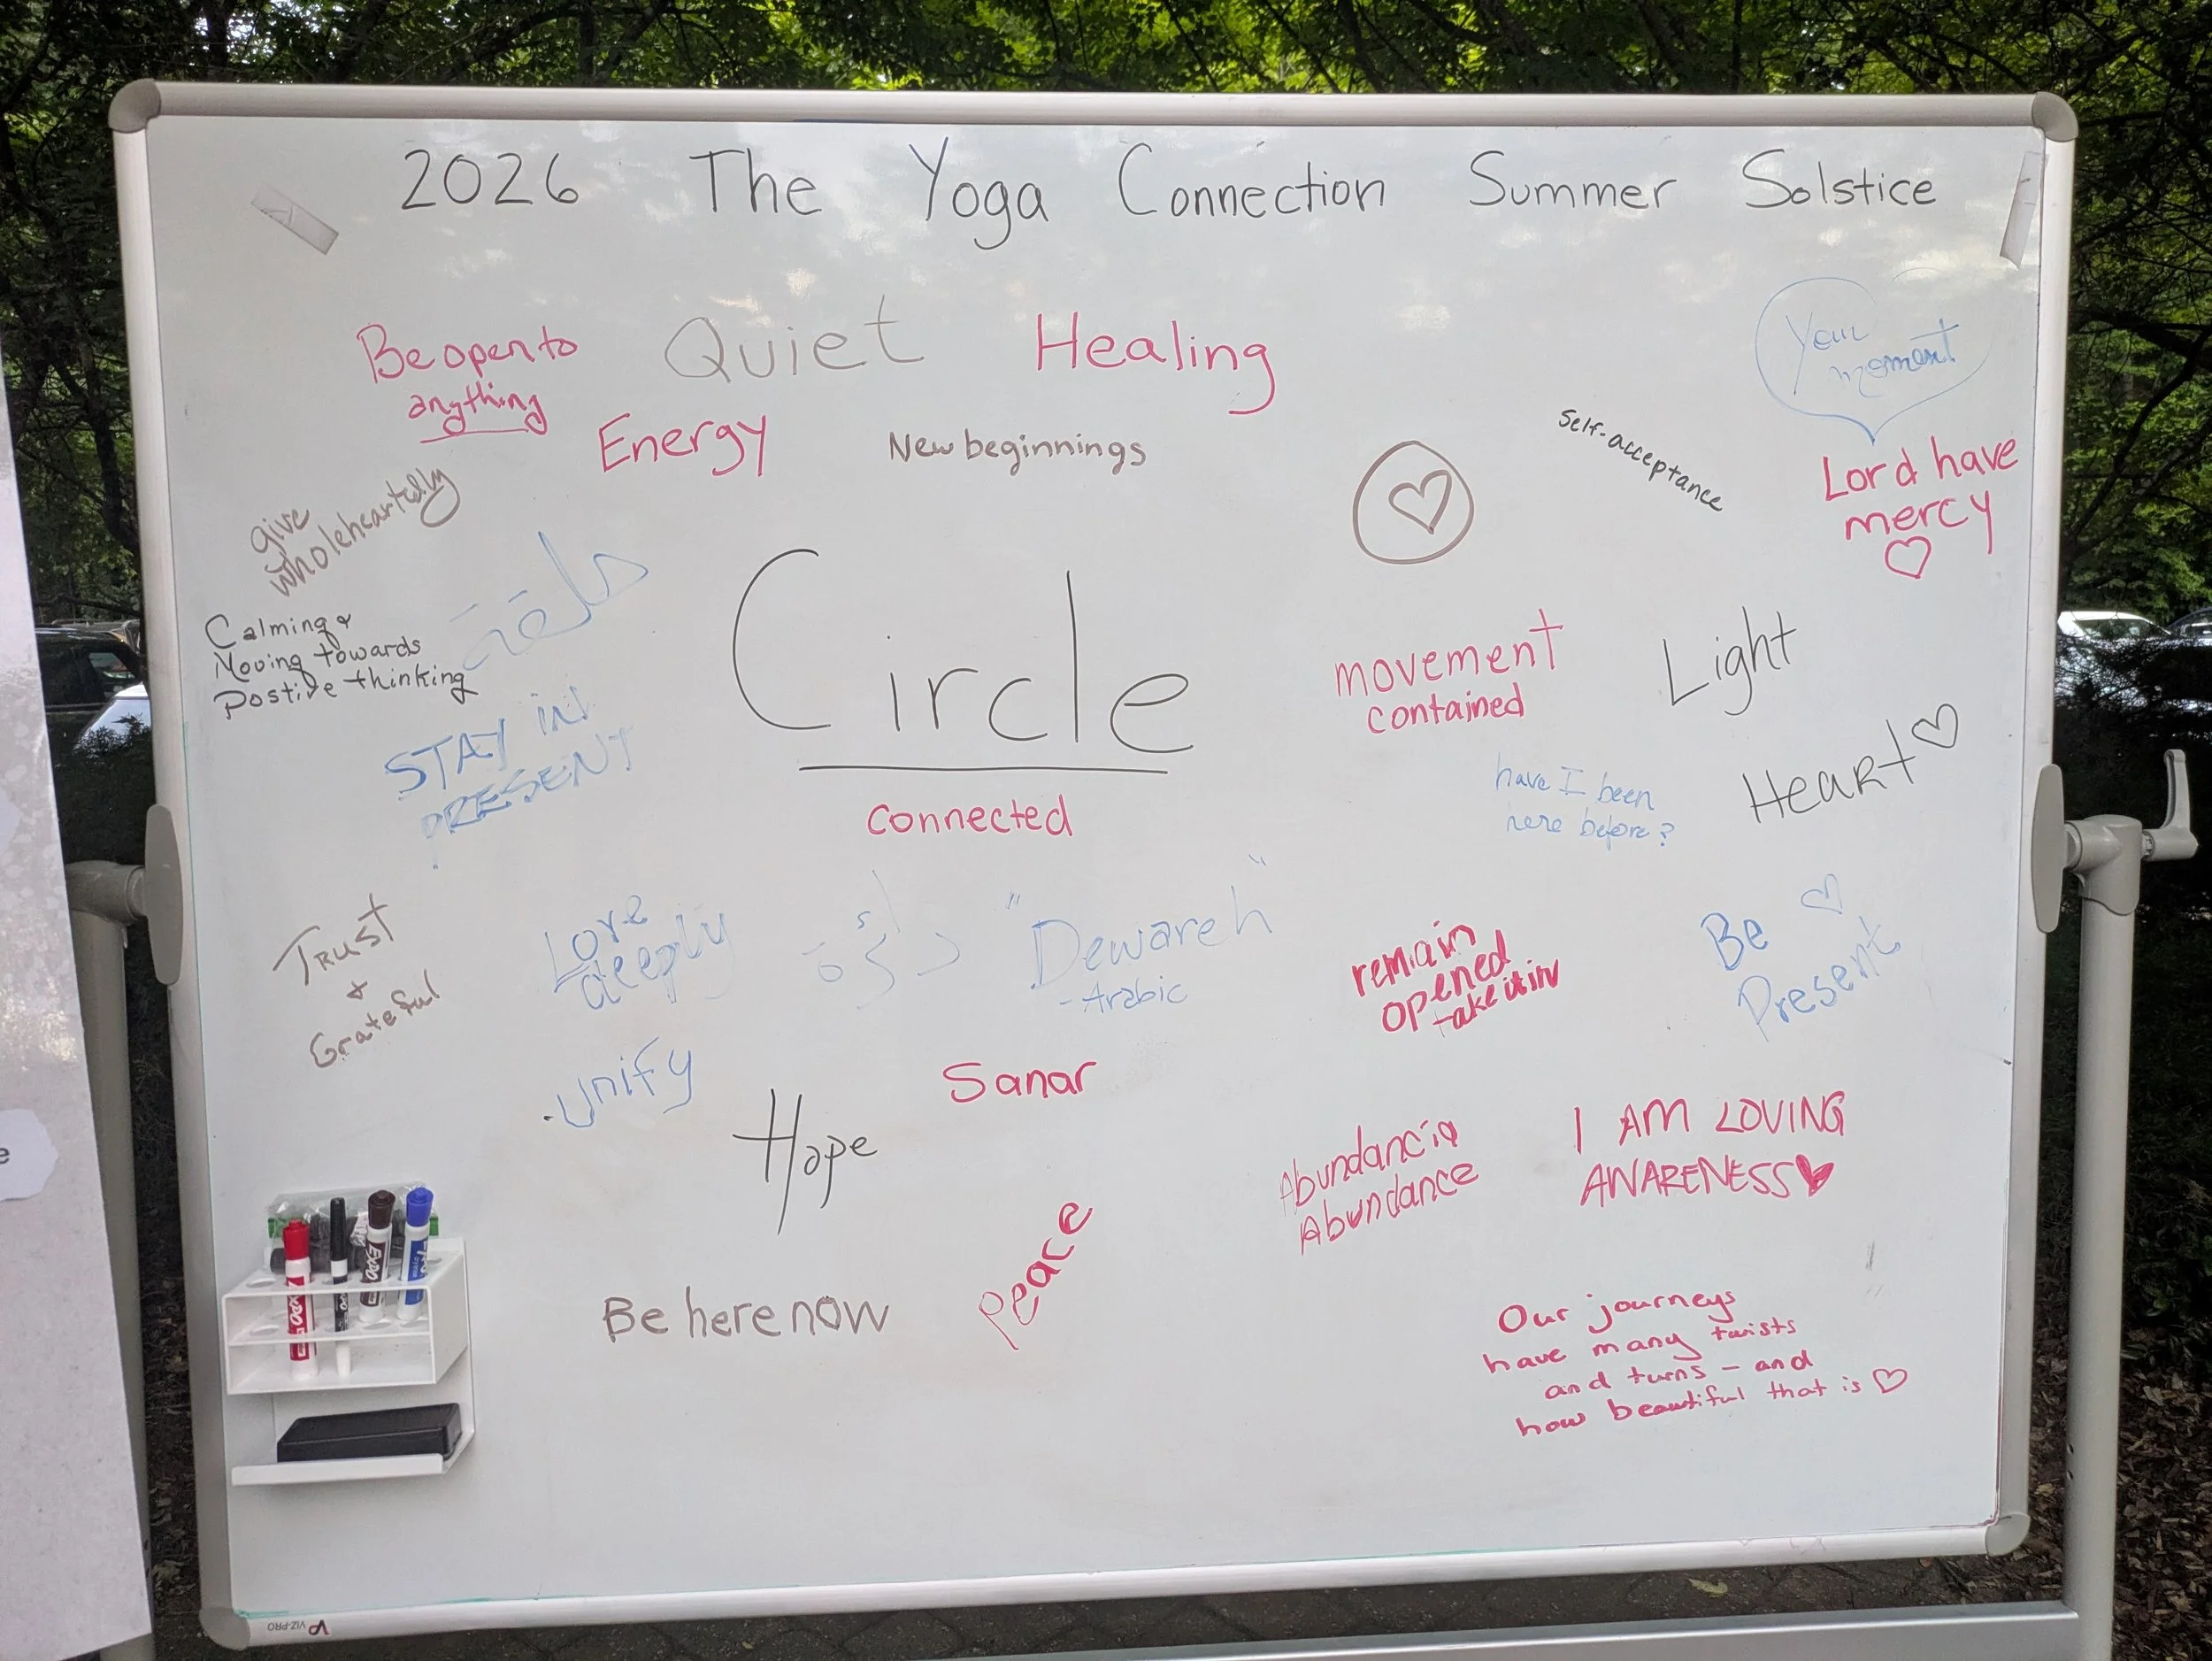 2026 The Yoga Connection Summer Solstice
Be open to
anything
Quiet
Healing
Your
moment
Energy
New beginnings
Self-acceptance
Lord have
mercy
give
wholeheartedly
حلقة
Calming &
Moving towards
Postive thinking
Circle
movement
contained
Light
STAY IN
PRESENT
connected
have I been
here before?
HEART
Trust
+
Grateful
Love
deeply
"Dewareh"
-Arabic
remain
opened
take it in
Be
Present
Unify
Sanar
Hope
Abundancia
Abundance
I AM LOVING
AWARENESS
Peace
Be here now
Our journeys
have many twists
and turns – and
how beautiful that is
EXPO
EXPO
VIZ-PRO